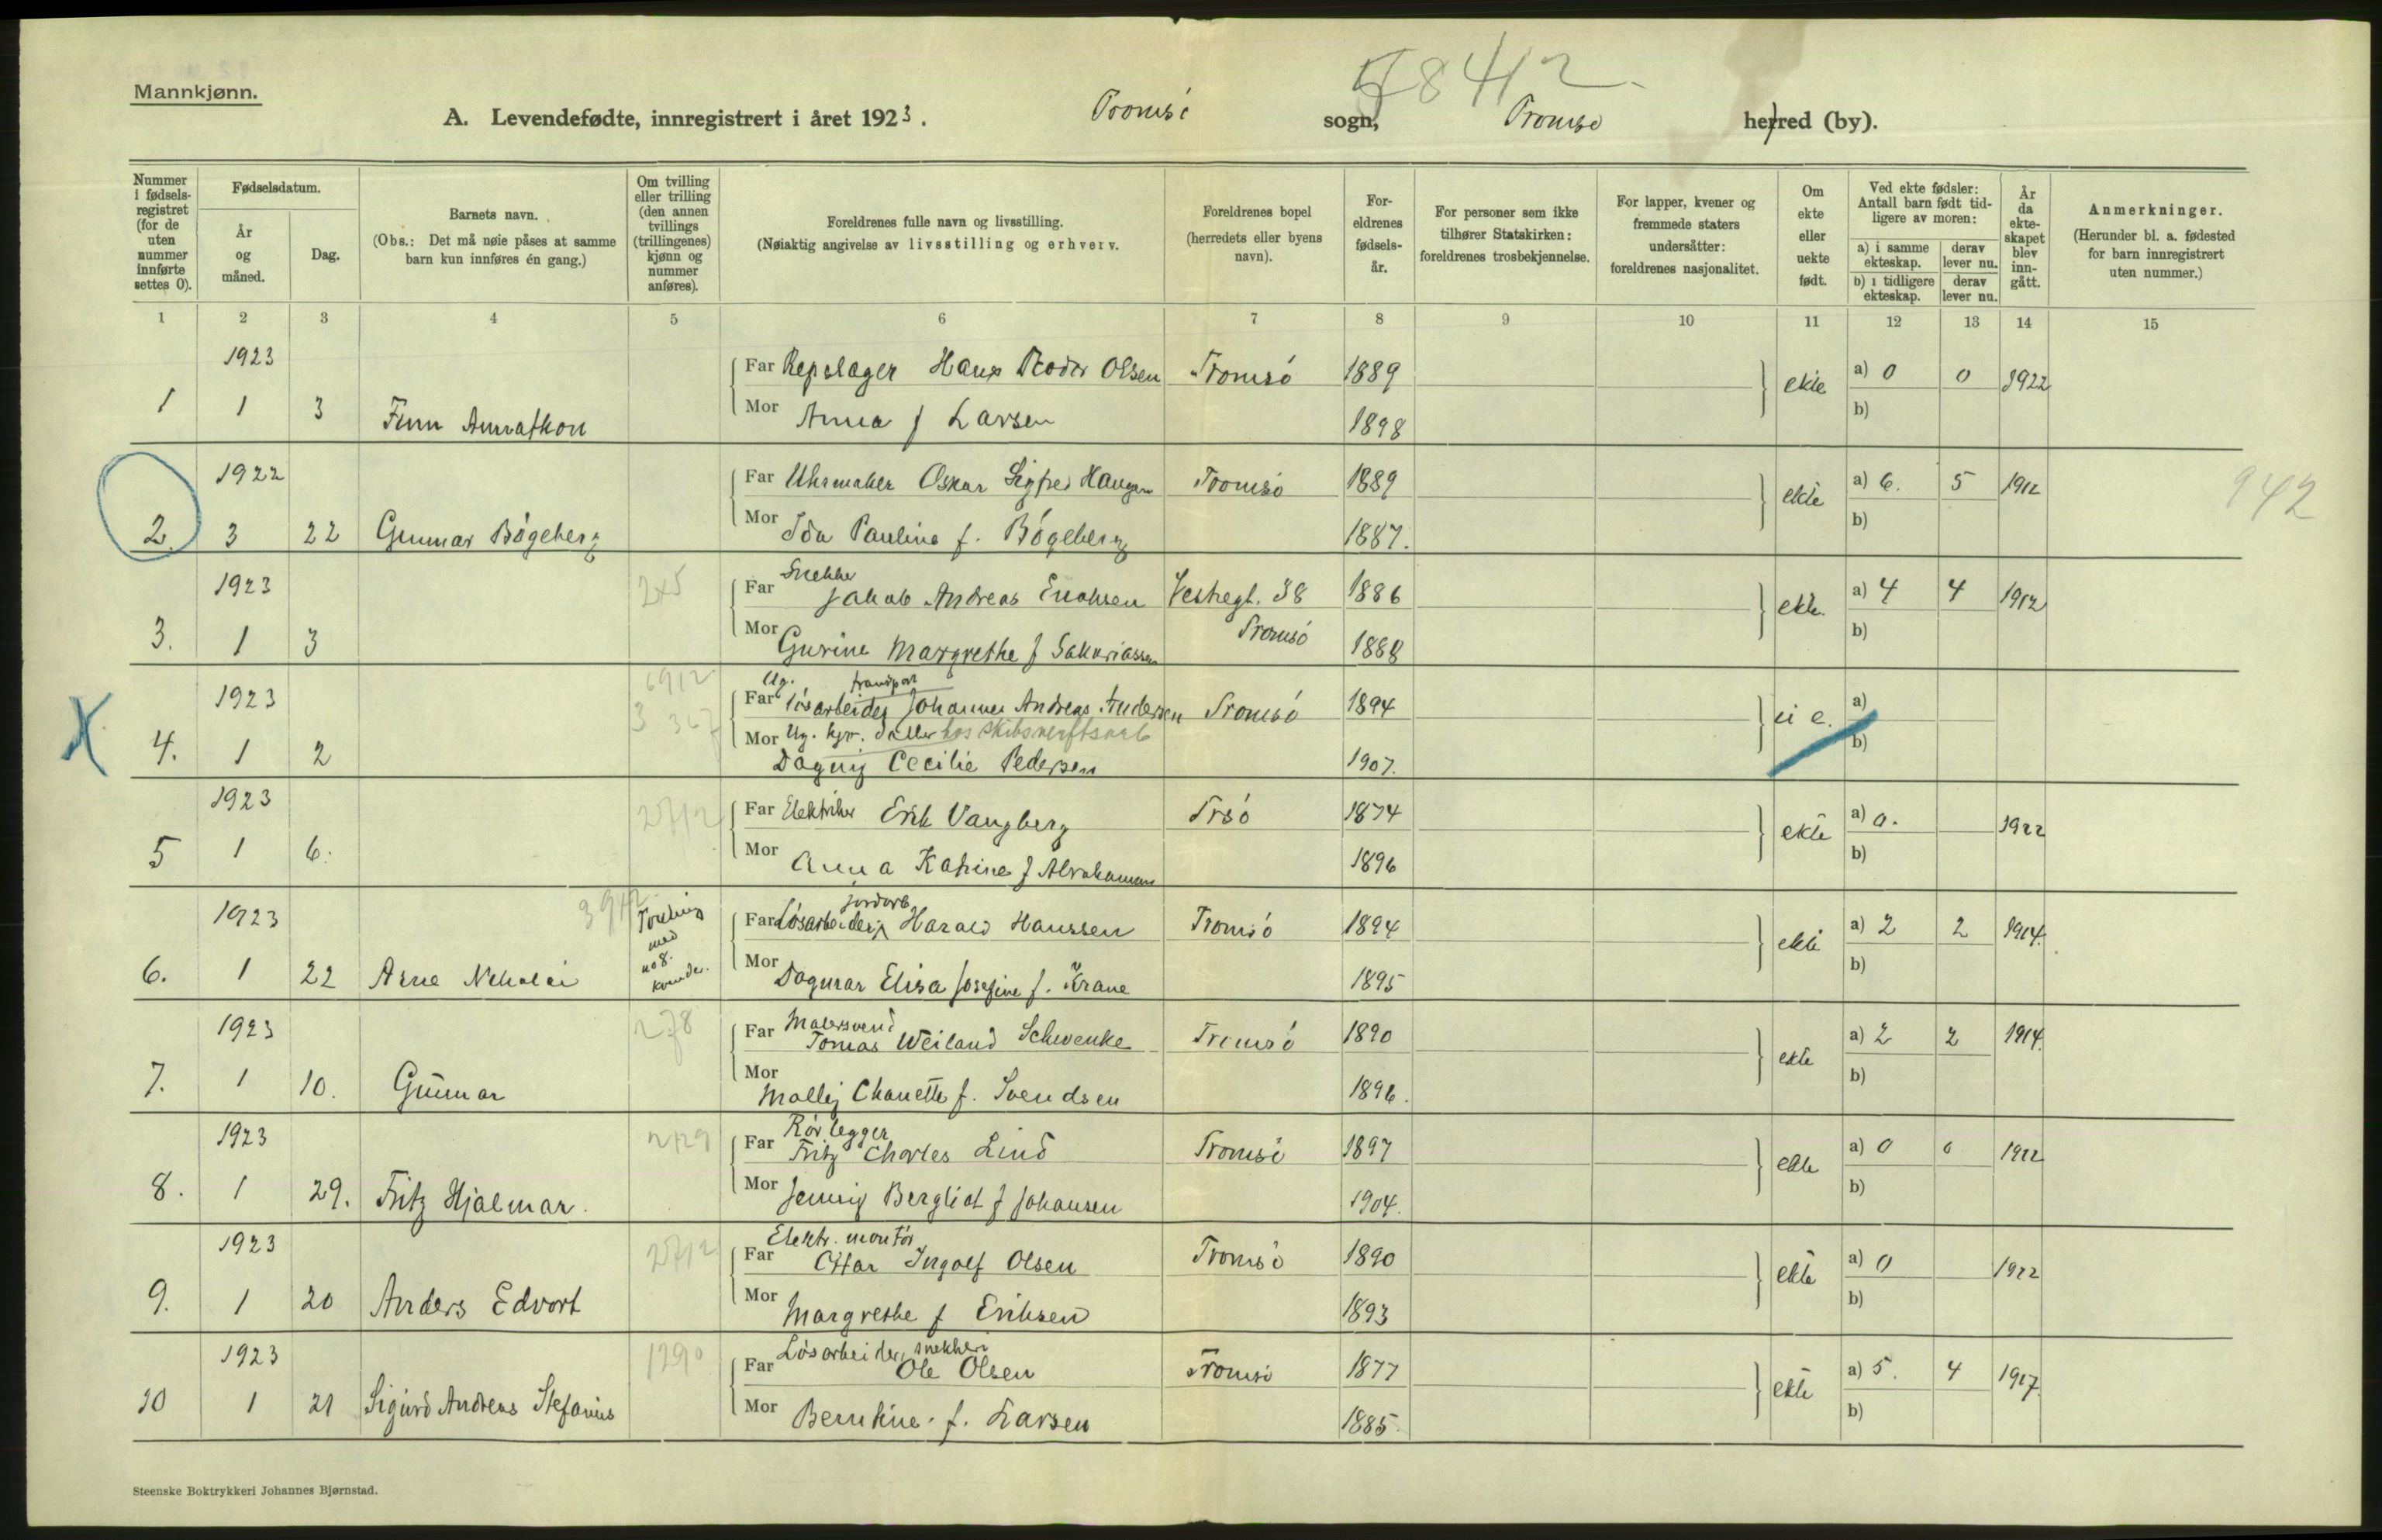 Mannkjønn.
5842
A. Levendefødte, innregistrert i året 1923. Tromsö sogn, Tromsö herred (by).
Nummer i fødsels-registret (for de uten nummer innførte settes 0).
Fødselsdatum.
År og måned.
Dag.
Barnets navn.
(Obs.: Det må nøie påses at samme barn kun innføres én gang.)
Om tvilling eller trilling (den annen tvillings (trillingenes) kjønn og nummer anføres).
Foreldrenes fulle navn og livsstilling.
(Nøiaktig angivelse av livsstilling og erhverv.
Foreldrenes bopel (herredets eller byens navn).
For-eldrenes fødsels-år.
For personer som ikke tilhører Statskirken: foreldrenes trosbekjennelse.
For lapper, kvener og fremmede staters undersåtter: foreldrenes nasjonalitet.
Om ekte eller uekte født.
Ved ekte fødsler: Antall barn født tid-ligere av moren:
a) i samme ekteskap. derav lever nu.
b) i tidligere ekteskap. derav lever nu.
År da ekte-skapet blev inn-gått.
Anmerkninger.
(Herunder bl. a. fødested for barn innregistrert uten nummer.)
1 2 3 4 5 6 7 8 9 10 11 12 13 14 15
1923 Far Repslager Hans Olsen Tromsö 1889 ekte a) 0 0 1922
1 1 3 Finn Mor Anna f Larsen 1898 b)
1922 Far Uhrmaker Oskar Sigfred Haugen Tromsö 1889 ekte a) 6. 5 1912 942
2. 3 22 Gunnar Bögeberg Mor Ida Pauline f. Bögeberg 1887. b)
1923 Far Snekker Jakob Andreas Vestregt. 38 1886 ekte. a) 4 4 1912
3. 1 3 Mor Gurine Margrethe f Sakariassen Tromsö 1888 b)
1923 6912 Ug. transport
Far Lösarbeider Johannes Andreas Andersen Tromsö 1894 ei e. a)
3 367 Mor Ug. hos skibsverftsarb
4. 1 2 Dagny Cecilie Pedersen 1907. b)
1923 2712 Far Elektriker Erik Vangberg Trsö 1874 ekte a) 0. 1922
5 1 6. Mor Anna Katrine f Abrahamsen 1896 b)
1923 3912 Tvilling med no 8. kvinde. jordarb
Far Lösarbeider Harald Hanssen Tromsö 1894 ekte a) 2 2 1914.
6. 1 22 Arne Nikolai Mor Dagmar Elisa Josefine f. Krane 1895 b)
1923 278 Far Malersvend Tomas Weiland Schwenke Tromsö 1890 ekte a) 2 2 1914.
7. 1 10. Gunnar Mor Molly Chanette f. Svendsen 1896. b)
1923 2129 Far Rörlegger Fritz Charles Lind Tromsö 1897 ekte a) 0 0 1922
8. 1 29. Fritz Hjalmar. Mor Jenny Bergliot f Johansen 1904. b)
1923 2712 Far Elektr. montör Ottar Ingolf Olsen Tromsö 1890 ekte a) 0 1922
9. 1 20 Anders Edvort Mor Margrethe f Eriksen 1893 b)
1923 1290 Far Lösarbeider, snekker Ole Olsen Tromsö 1877 ekte a) 5. 4 1917.
10 1 21 Sigurd Andreas Stefanus Mor Berntine. f. Larsen 1885. b)
Steenske Boktrykkeri Johannes Bjørnstad.